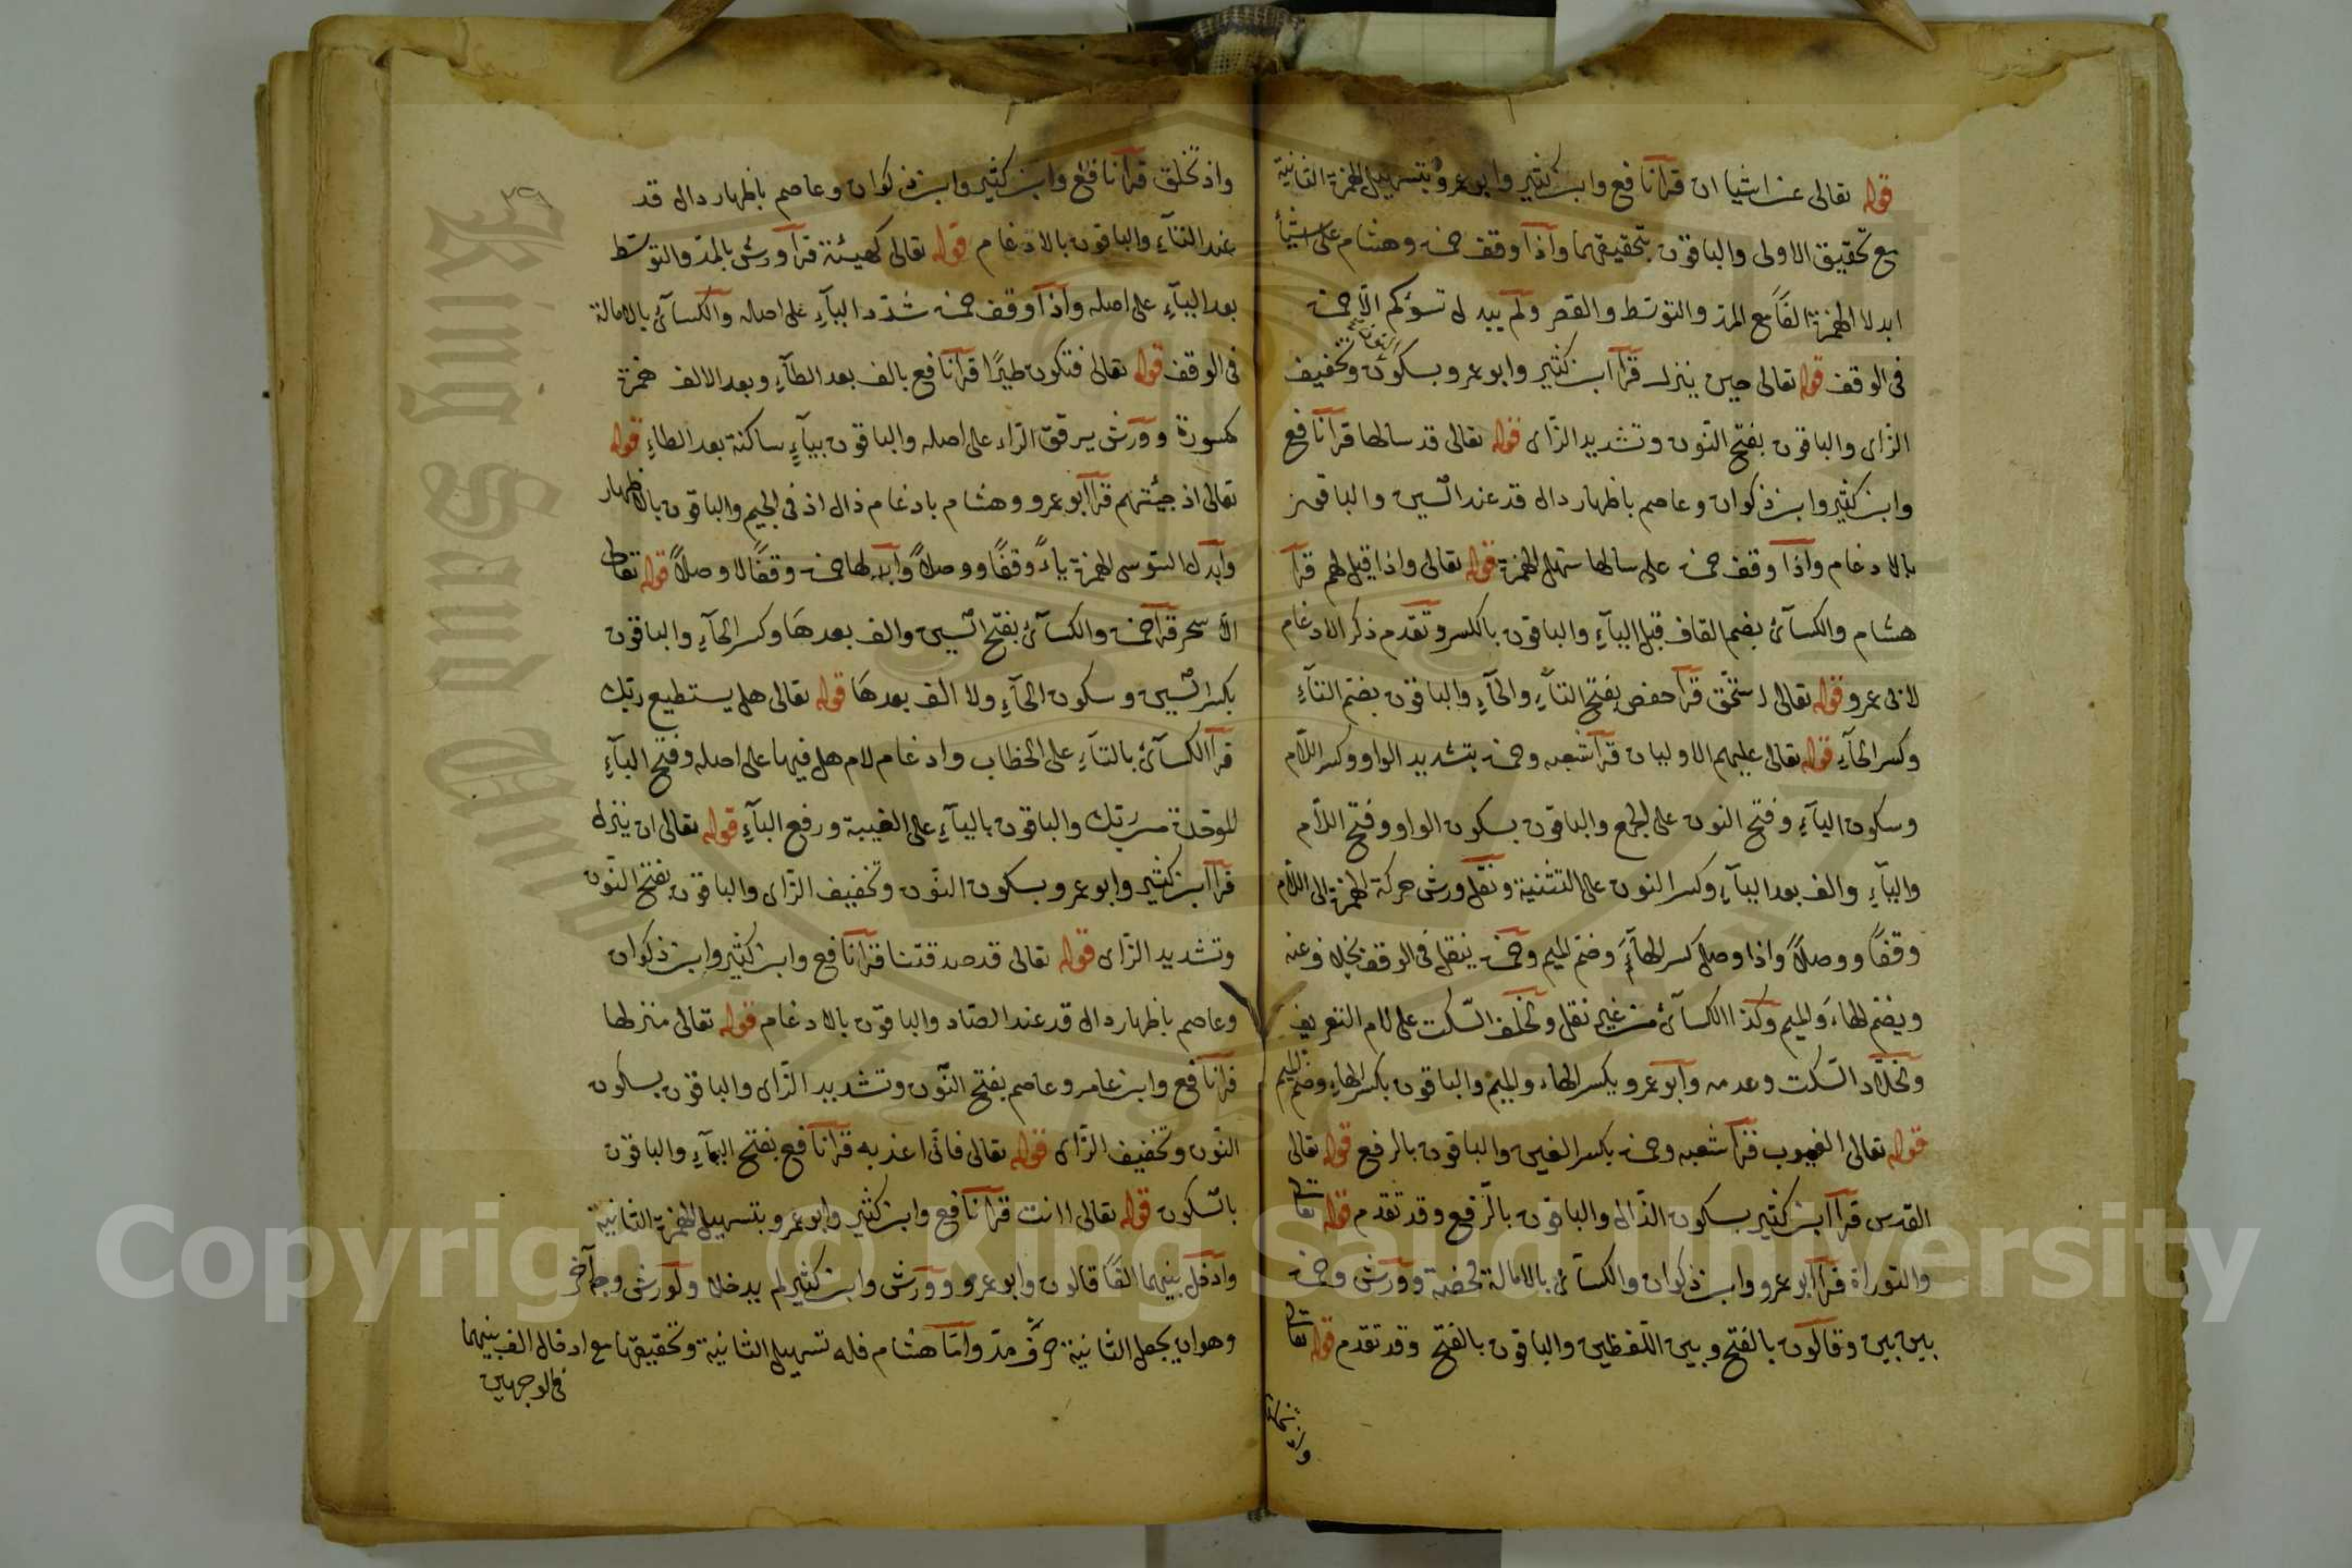 قوله تعالى عن اشيا ان قرا نافع وابن كثير وابو عمرو بتسهيل الهمزة الثانية
مع تحقيق الاولى والباقون بتحقيقهما واذا وقف حمزة وهشام على اشيأ
ابدلا الهمزة الفًا مع المد والتوسّط والقصر ولم يبدل تسؤكم الّا حمزة
فى الوقف قوله تعالى حين ينزل قرأ ابن كثير وابو عمرو بسكون النون وتخفيف
الزاى والباقون بفتح النّون وتشديد الزّاى قوله تعالى قد سالها قرا نافع
وابن كثير وابن ذكوان وعاصم باظهار دال قد عند السّين والباقون
بالادغام واذا وقف حمزة على سالها سهل الهمزة قوله تعالى واذا قيل لهم قرأ
هشام والكسآئى بضم القاف قبل اليآءِ والباقون بالكسر وتقدم ذكر الادغام
لابى عمرو قوله تعالى استحقّ قرأ حفص بفتح التآءِ والحآءِ والباقون بضم التآءِ
وكسر الحآءِ قوله تعالى عليهم الاوليان قرأ شعبه وحمزة بتشديد الواو وكسر اللّام
وسكون اليآءِ وفتح النون على الجمع والباقون بسكون الواو وفتح اللّام
واليآءِ والف بعد اليآءِ وكسر النون على التثنية ونقل ورش حركة الهمزة الى اللّام
وقفًا ووصلًا واذا وصل كسر الهآءَ وضم الميم وحمزة ينقل فى الوقف بخلاف عنه
ويضم الهاءَ والميم وكذا الكسآئى من غير نقل ولخلف السّكت على لام التعريف
ولخلّاد السّكت وعدمه وابو عمرو بكسر الهاء والميم والباقون بكسر الهاءِ وضم الميم
قوله تعالى الغيوب قرأ شعبه وحمزة بكسر الغين والباقون بالرفع قوله تعالى
القدس قرأ ابن كثير بسكون الدّال والباقون بالرّفع وقد تقدم قوله تعالى
والتوراة قرأ ابو عمرو وابن ذكوان والكسآئى بالامالة محضة وورش وحمزة
بين بين وقالون بالفتح وبين اللّفظين والباقون بالفتح وقد تقدم قوله تعالى
واذ تخلق
واذ تخلق قرا نافع وابن كثير وابن ذكوان وعاصم باظهار دال قد
عند التآءِ والباقون بالادغام قوله تعالى كهيئة قرأ ورش بالمدّ والتوسّط
بعد اليآءِ على اصله واذا وقف حمزة شدّد اليآءِ على اصله والكسآئى بالامالة
فى الوقف قوله تعالى فتكون طيرًا قرا نافع بالف بعد الطآءِ وبعد الالف همزة
مكسورة وورش يرقق الرّاء على اصله والباقون بيآءٍ ساكنة بعد الطاءِ قوله
تعالى اذ جئتهم قرأ ابو عمرو وهشام بادغام ذال اذ فى الجيم والباقون بالاظهار
وابدل السّوسى الهمزة ياءً وقفًا ووصلًا وابدلها حمزة وقفًا لا وصلًا قوله تعالى
الّا سحر قرأ حمزة والكسآئى بفتح السّين والف بعدهَا وكسر الحآءِ والباقون
بكسر السّين وسكون الحآءِ ولا الف بعدهَا قوله تعالى هل يستطيع ربّك
قرأ الكسآئى بالتآءِ على الخطاب وادغام لام هل فيها على اصله وفتح البآءِ
الموحّدة من ربّك والباقون باليآءِ على الغيبة ورفع البآءِ قوله تعالى ان ينزل
قرأ ابن كثير وابو عمرو بسكون النّون وتخفيف الزّاى والباقون بفتح النّون
وتشديد الزّاى قوله تعالى قد صدقتنا قرا نافع وابن كثير وابن ذكوان
وعاصم باظهار دال قد عند الصّاد والباقون بالادغام قوله تعالى منزلها
قرا نافع وابن عامر وعاصم بفتح النّون وتشديد الزّاى والباقون بسكون
النّون وتخفيف الزّاى قوله تعالى فانّى اعذبه قرا نافع بفتح اليآءِ والباقون
بالسّكون قوله تعالى اانت قرا نافع وابن كثير وابو عمرو بتسهيل الهمزة الثانية
وادخل بينهما الفًا قالون وابو عمرو وورش وابن كثير لم يدخلا ولورش وجه آخر
وهو ان يجعل الثانية حرف مدّ وامّا هشام فله تسهيل الثانية وتحقيقها مع ادخال الف بينهما
فى الوجهين
King Saud University
Copyright © King Saud University